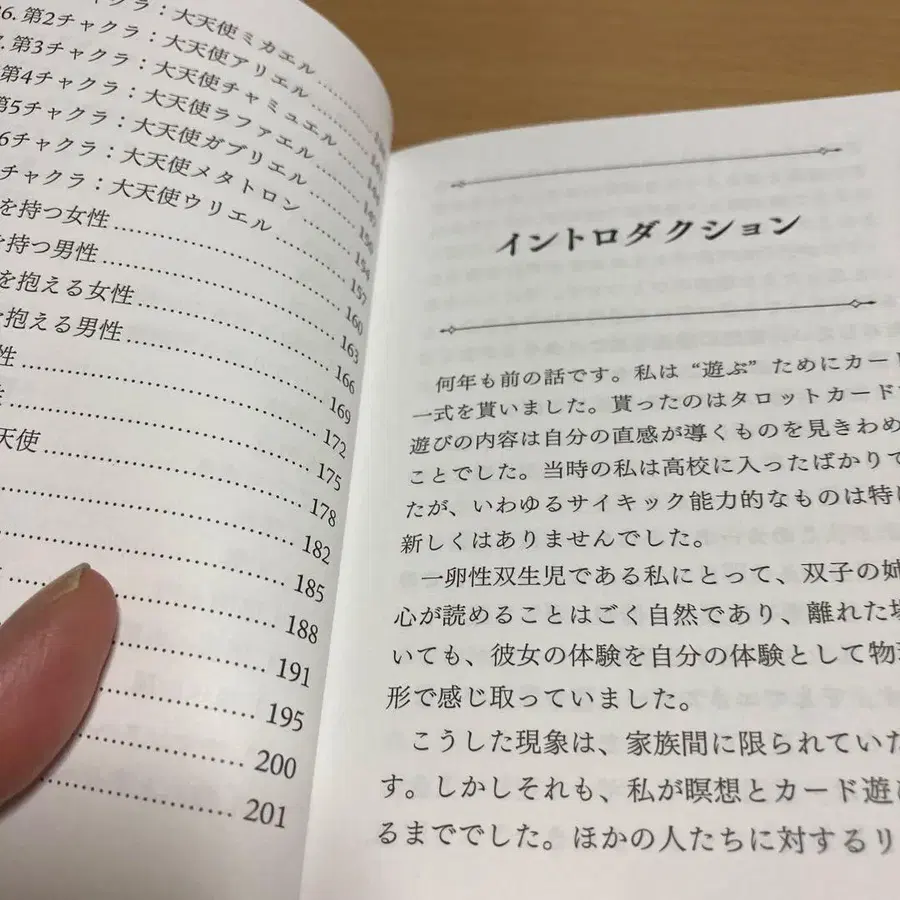 チャクラ：大天使ミカエル
6. 第2チャクラ：大天使アリエル
7. 第3チャクラ：大天使チャミュエル
第4チャクラ：大天使ラファエル
第5チャクラ：大天使ガブリエル
6チャクラ：大天使メタトロン 150
チャクラ：大天使ウリエル 154
を持つ女性 157
持つ男性 160
を抱える女性 163
抱える男性 166
性 169
172
天使 175
178
182
185
188
191
195
200
201
イントロダクション
何年も前の話です。私は“遊ぶ”ためにカード
一式を貰いました。貰ったのはタロットカード
遊びの内容は自分の直感が導くものを見きわめ
ことでした。当時の私は高校に入ったばかりで
たが、いわゆるサイキック能力的なものは特に
新しくはありませんでした。
一卵性双生児である私にとって、双子の姉
心が読めることはごく自然であり、離れた場
いても、彼女の体験を自分の体験として物理
形で感じ取っていました。
こうした現象は、家族間に限られていた
す。しかしそれも、私が瞑想とカード遊び
るまででした。ほかの人たちに対するリ